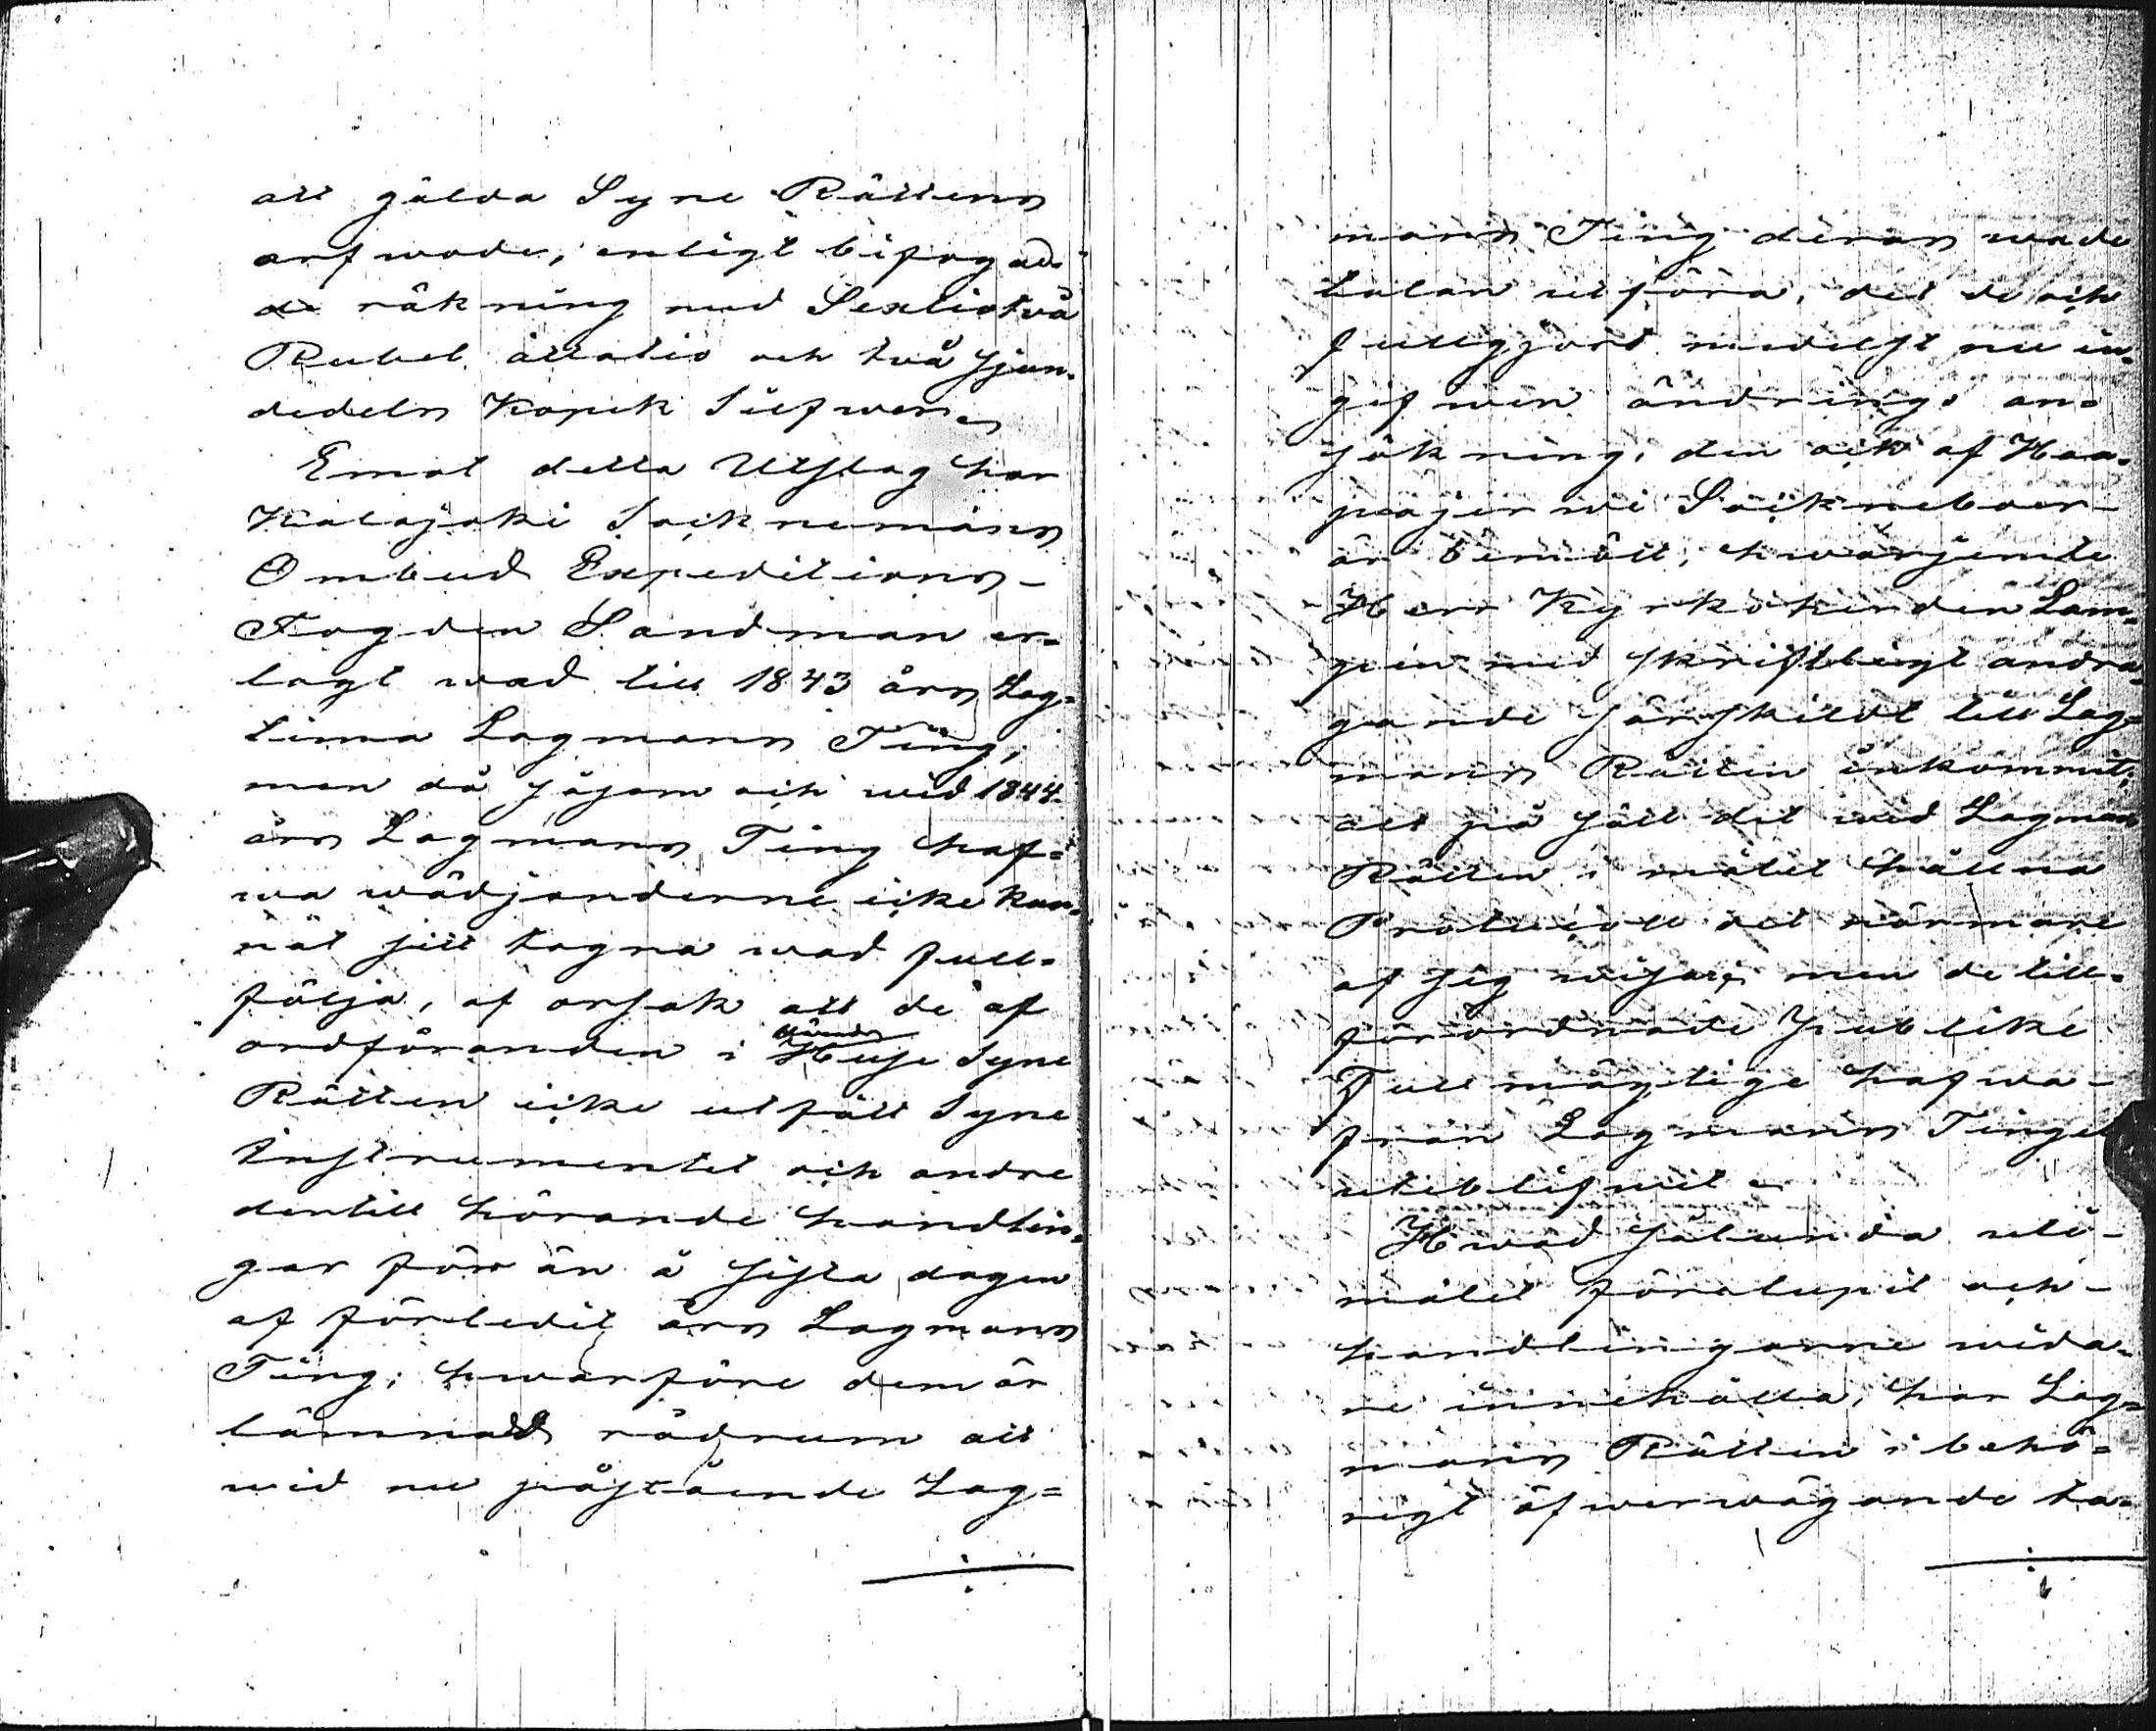 att gälda Syne Rättens
arfwode, enligt bifogad
de räkning med Sextiotvå
Rubel åttatio och två sjun-
dedels Kopek Silfwer.
Emot detta Utslag har
Kalajoki Socknemäns
Ombud Expeditions-
Fogden Sandman er-
lagt wad till 1843 års Lag-
tima Lagmans Ting,
men då såsom och wid 1844
års Lagmans Ting haf-
wa wädjanderne icke kun-
nat sitt tagna wad full-
följa, af orsak att de af
ordföranden i Härads
Huse Syne
Rätten icke utfått Syne
Instrumentet och andre
dertill hörande handlin-
gar förr än å sista dagen
af förledit års Lagmans
Ting; hwarföre dem är
lämnadt rådrum att
wid nu påstående Lag-
mans Ting deras wade
talan utföra, det de ock
fullgjort medelst nu in-
gifwen ändrings an-
sökning, den ock af Haa-
pajerwi Sockneboer
är bemött, hwarjemte
Herr Kyrkoherden Lam-
pén med skriftligt andra-
gande särskildt till Lag-
mans Rätten inkommit;
att på sätt det wid Lagmans
Rätten i målet hållna
Protocoll det närmare
af sig wisar; men de till-
förordnade publike
Fullmägtige hafwa
från Lagmans Tinget
uteblifwit.
Hwad sålunda uti
målet förelupit och
handlingarne wida-
re innehålla, har Lag-
mans Rätten i behö-
rigt öfwerwägande ta-